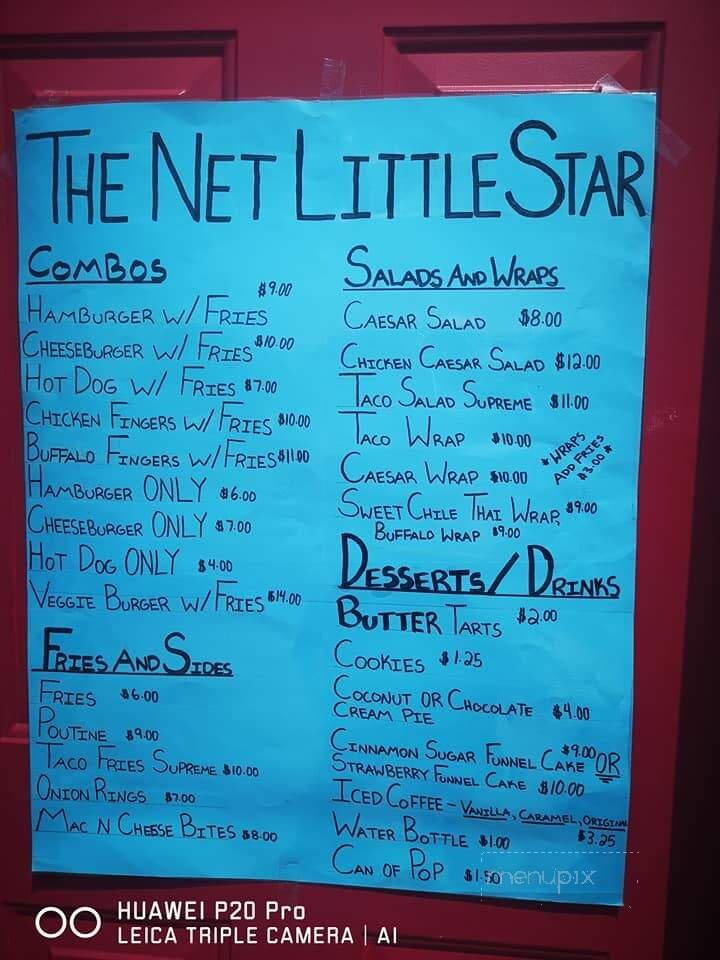 THE NET LITTLE STAR
COMBOS
HAMBURGER W/ FRIES $9.00
CHEESEBURGER W/ FRIES $10.00
HOT DOG W/ FRIES $7.00
CHICKEN FINGERS W/ FRIES $10.00
BUFFALO FINGERS W/ FRIES $11.00
HAMBURGER ONLY $6.00
CHEESEBURGER ONLY $7.00
HOT DOG ONLY $4.00
VEGGIE BURGER W/ FRIES $14.00
FRIES AND SIDES
FRIES $6.00
POUTINE $9.00
TACO FRIES SUPREME $10.00
ONION RINGS $7.00
MAC N CHEESE BITES $8.00
SALADS AND WRAPS
CAESAR SALAD $8.00
CHICKEN CAESAR SALAD $12.00
TACO SALAD SUPREME $11.00
TACO WRAP $10.00
CAESAR WRAP $10.00
*WRAPS
ADD FRIES
$3.00*
SWEET CHILE THAI WRAP $9.00
BUFFALO WRAP $9.00
DESSERTS/DRINKS
BUTTER TARTS $2.00
COOKIES $1.25
COCONUT OR CHOCOLATE
CREAM PIE $4.00
CINNAMON SUGAR FUNNEL CAKE $9.00 OR
STRAWBERRY FUNNEL CAKE $10.00
ICED COFFEE - VANILLA, CARAMEL, ORIGINAL
$3.25
WATER BOTTLE $1.00
CAN OF POP $1.50
menupix
HUAWEI P20 Pro
LEICA TRIPLE CAMERA | AI